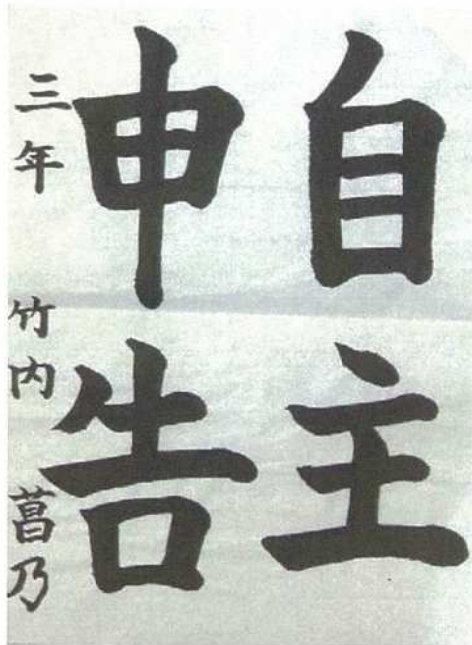 自主
申告
三年 竹内 菖乃